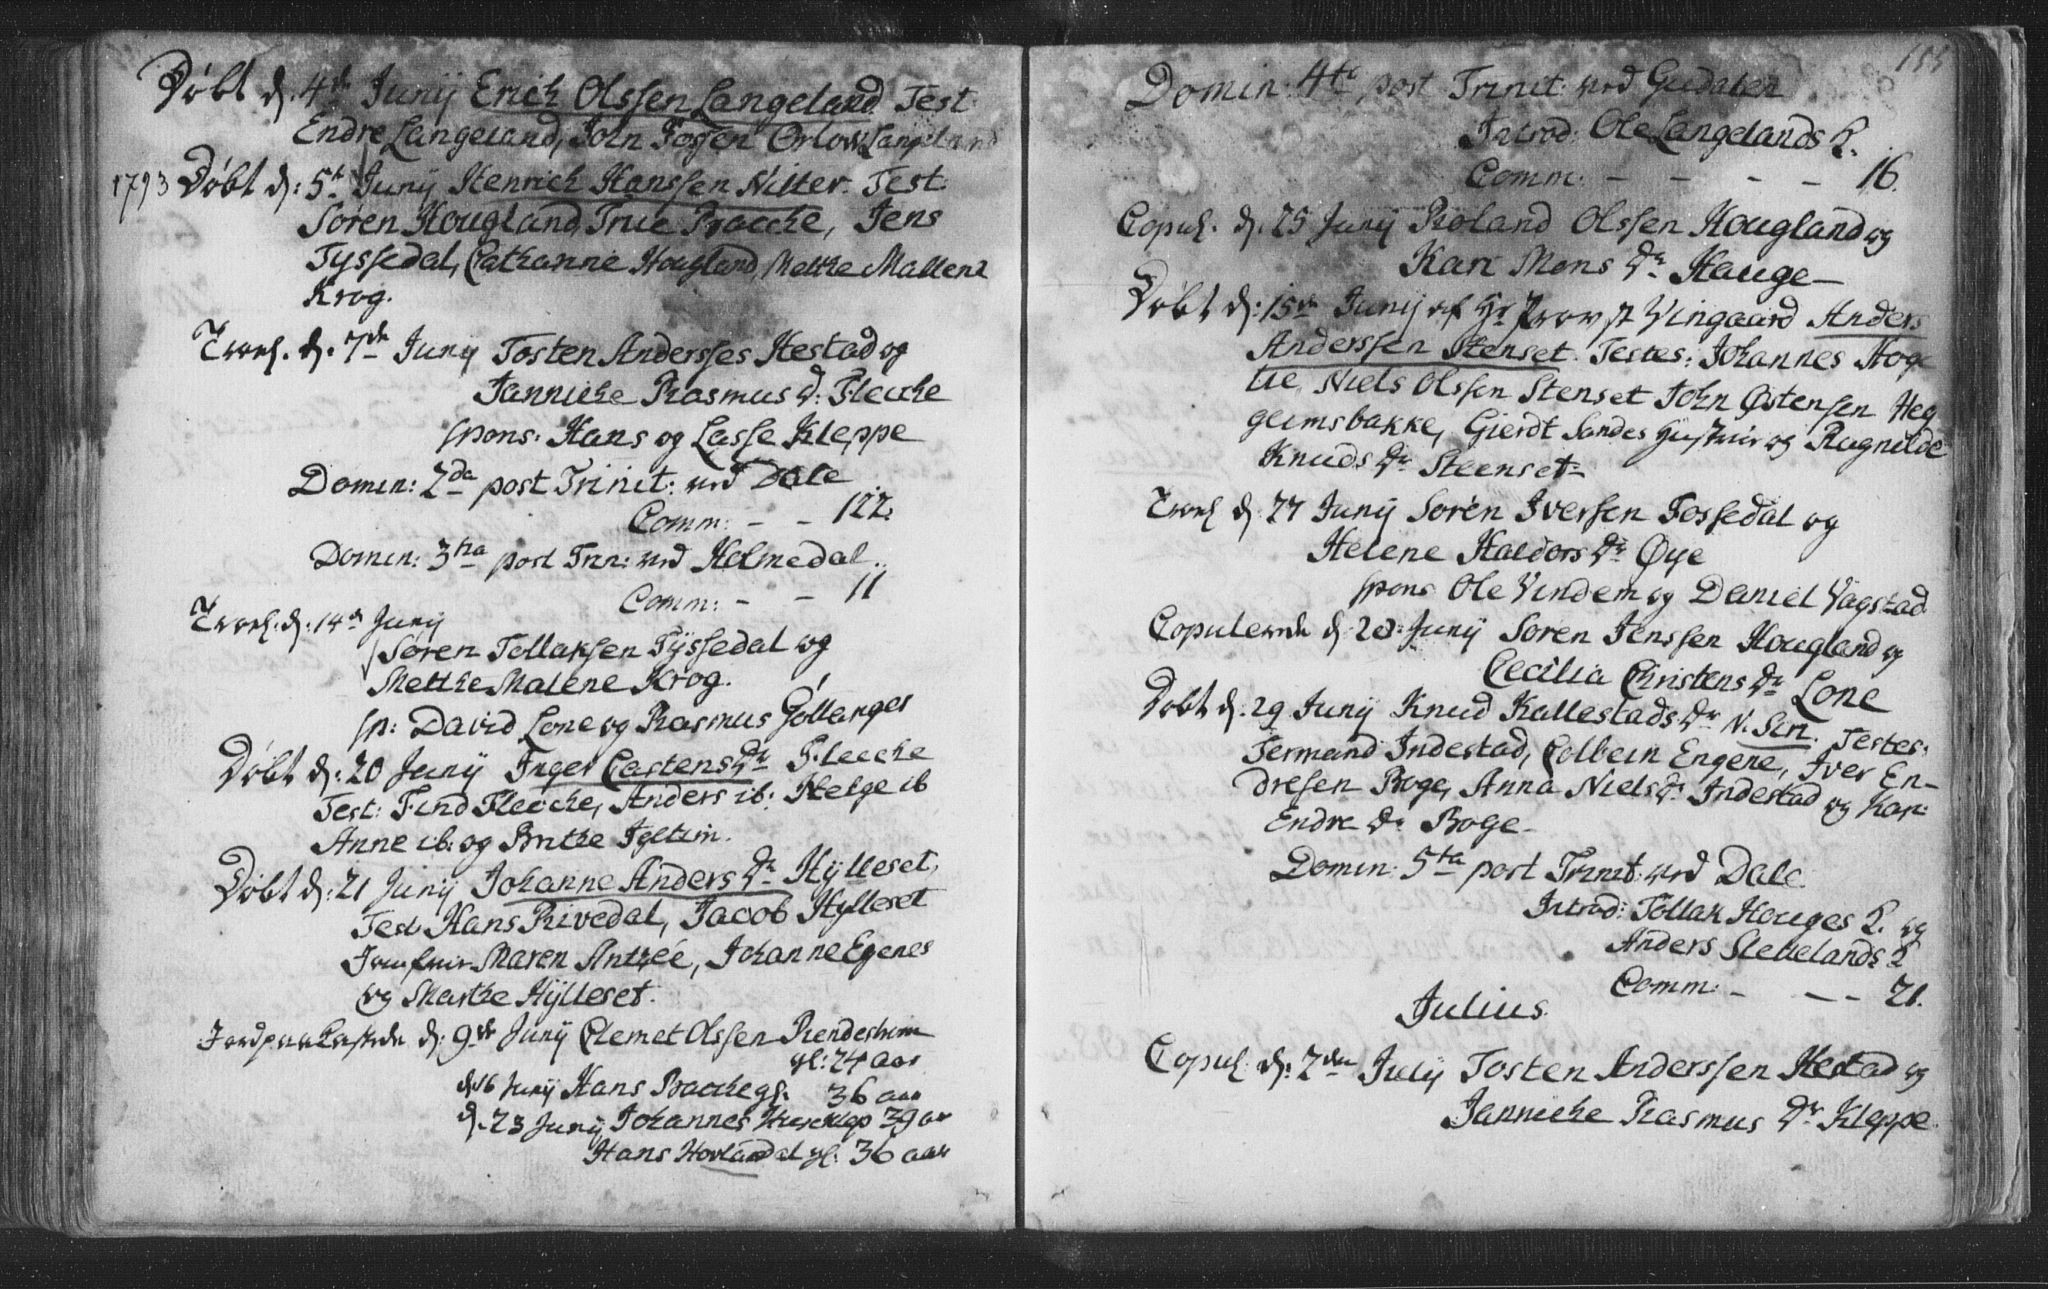 Døbt d. 4de Junij Erich Olssen Langeland Test:
Endre Langeland, John Fossen Langeland
1793 Døbt d: 5te Junij Henrich Hanssen Nitter. Test:
Søren Hougland, True Bracche, Jens
Tyssedal, Catharine Hougland, Metthe Mallene
Krog.
Trool. d. 7de Junij Tosten Anderssen Hestad og
Jannicke Rasmus D: Flecche
spons: Hans og Lasse Kleppe
Domin: 2da post Trinit: ved Dale
Comm: - - 122.
Domin: 3tia post Trin: ved Holmedal.
Comm: - - 11
Trool. d: 14de Junij
Søren Tollaksen Tyssedal og
Metthe Malene Krog.
sp: David Lone og Rasmus
Døbt d: 20 Junij Inger Castens Dr Flecche
Test: Find Flecche, Anders ib: Helge ib
Anne ib: og Brithe
Døbt d: 21 Junij Johanne Anders Dr Hylleset,
Test: Hans Rivedal, Jacob Hylleset
Jomfrue Maren Antzée, Johanne Egenes
og Marthe Hylleset.
Jordpaakastede d: 9de Junij Clemet Olssen
gl: 24 aar
d. 16 Junij Hans Bracche gl. 36 aar
d. 23 Junij Johannes 39 aar
Hans Hovlandal gl: 36 aar
155
Domin: 4te post Trinit: ved Gudalen
Introd: Ole Langelands K.
Comm: - - - - 16.
Copul. d. 25 Junij Roland Olssen Hougland og
Kari Mons Dr Hauge
Døbt d: 15de Junij af Hr Provst Wingaard Anders
Anderssen Stenset. Testes: Johannes Hog
Niels Olssen Stenset John Østensen Heg
geimsbakke, Gierdt Sandes Hustrue og Ragnilde
Knuds Dr Steenset
Trool d. 27 Junij Søren Iversen Fossedal og
Helene Haldors Dr Øye
spons Ole Vindem og Daniel Vagstad
Copulerede d. 28 Junij Søren Jenssen Hougland og
Cecilia Christens Dr Lone
Døbt d. 29 Junij Knud Kallestads Dr N. Siri. Testes:
Fermand Indestad, Colbein Engene, Iver En-
dresen Boge, Anna Niels Dr Indestad og Kari
Endre Dr Boge
Domin: 5ta post Trinit: ved Dale.
Introd: Tollak Houges K. og
Anders Slettelands K
Comm: - - - 21.
Julius.
Copul: d: 2den Julij Tosten Anderssen Hestad og
Jannicke Rasmus Dr Kleppe.